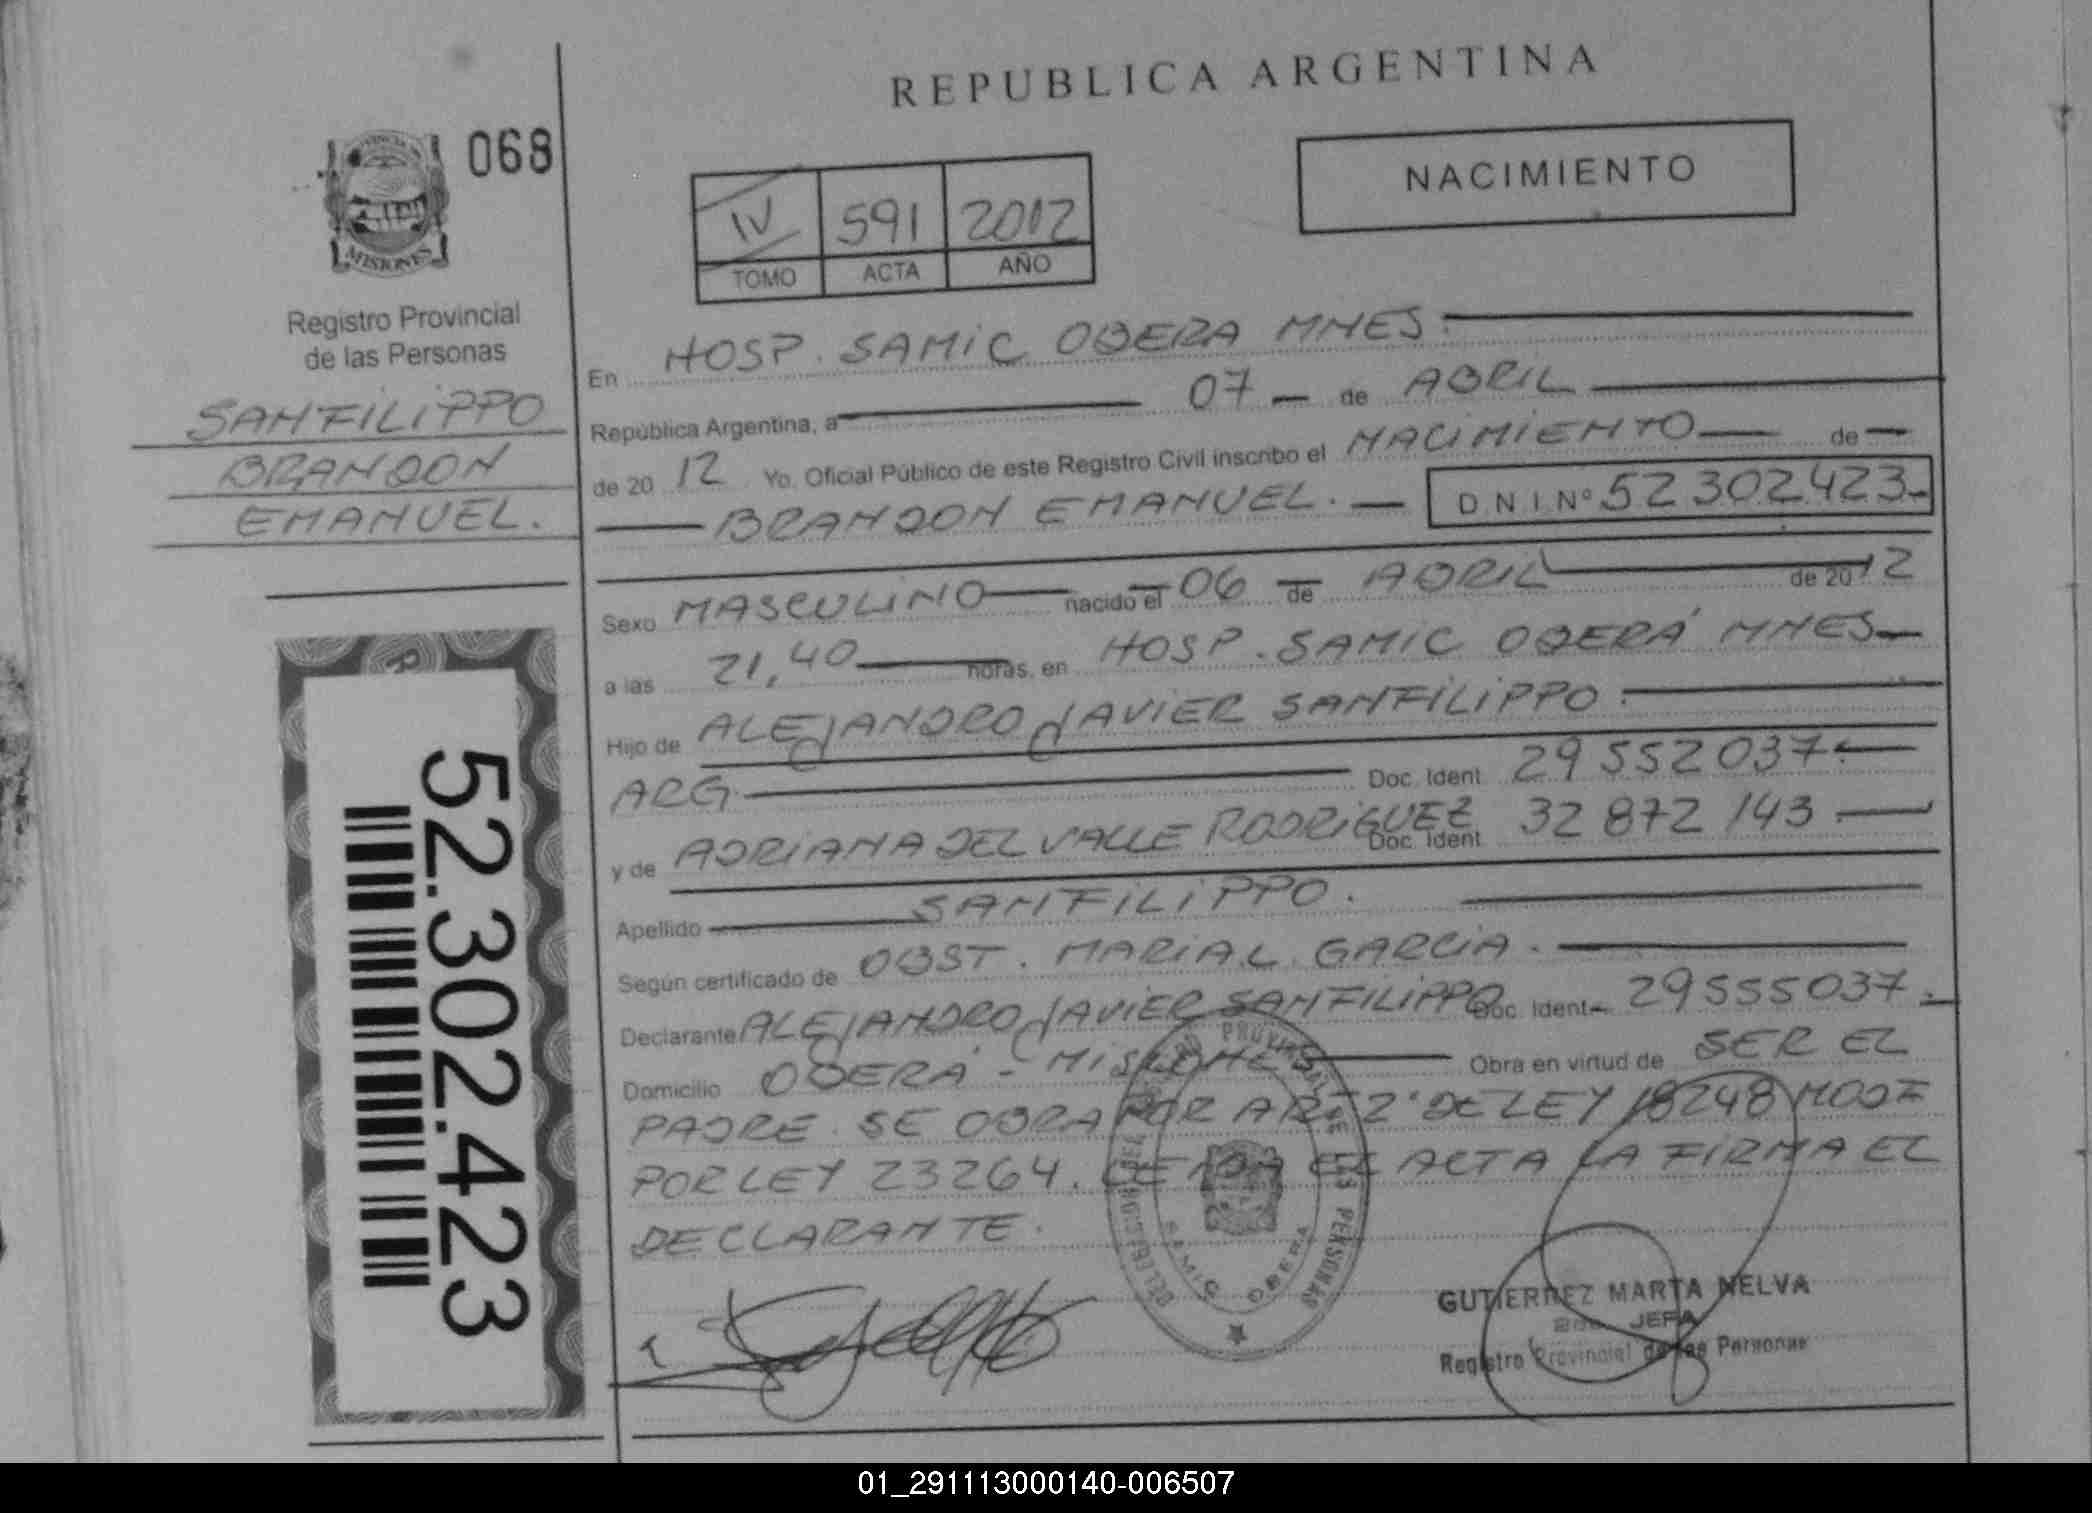 REPUBLICA ARGENTINA
PROVINCIA DE
MISIONES
068
Registro Provincial
de las Personas
SANFILIPPO
BRANDON
EMANUEL.
52.302.423
IV 591 2012
TOMO ACTA AÑO
NACIMIENTO
En HOSP. SAMIC OBERA MNES.
República Argentina, a 07 de ABRIL
de 20 12 Yo. Oficial Público de este Registro Civil inscribo el NACIMIENTO de
BRANDON EMANUEL. D N I Nº 52302423
Sexo MASCULINO nacido el 06 de ABRIL de 20 12
a las 21,40 horas, en HOSP. SAMIC OBERÁ MNES
Hijo de ALEJANDRO JAVIER SANFILIPPO.
ARG Doc. Ident 29 552 037.
y de ADRIANA DEL VALLE RODRIGUEZ Doc. Ident 32 872 143
Apellido SANFILIPPO.
Según certificado de OBST. MARIA.L. GARCIA.
Declarante ALEJANDRO JAVIER SANFILIPPO Doc. Ident 29555037.
Domicilio OBERÁ - MISIONES Obra en virtud de SER EL
PADRE. SE OBRA POR ART 2º DE LEY 18248 MODF
POR LEY 23264. LEIDA EL ACTA LA FIRMA EL
DECLARANTE.
PROVINCIAL DE LAS PERSONAS
SAMIC OBERA
GUTIERREZ MARTA NELVA
JEFA
Registro Provincial de las Personas
01_291113000140-006507